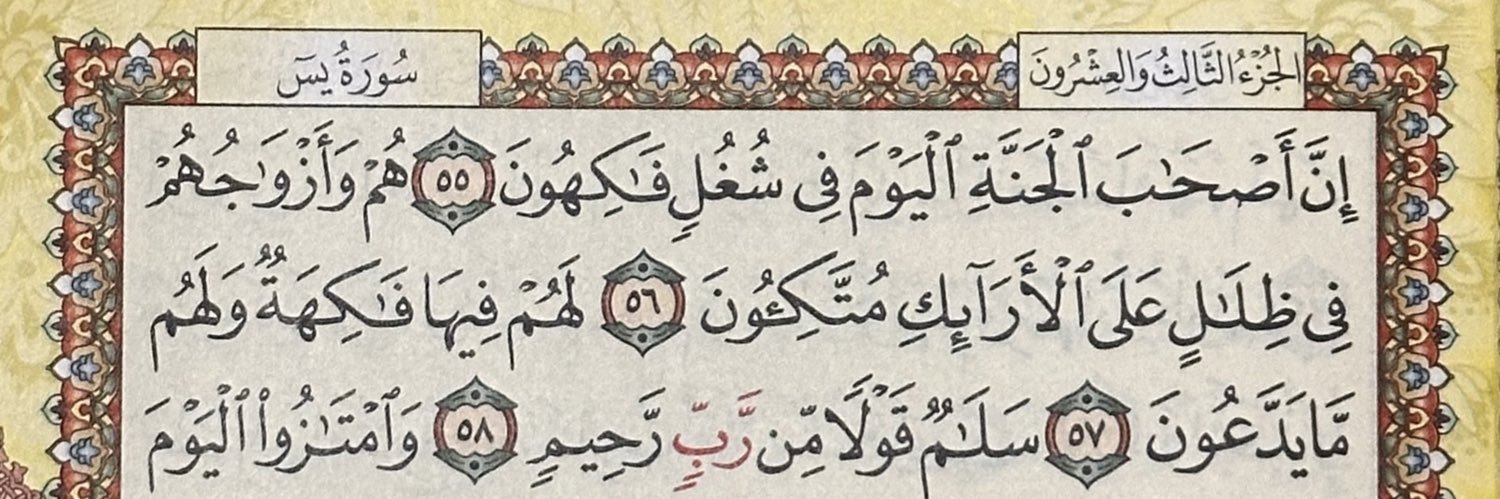 الجُزْءُ الثَّالِثُ وَالعِشْرُونَ
سُورَةُ يسٓ
إِنَّ أَصْحَـٰبَ ٱلْجَنَّةِ ٱلْيَوْمَ فِى شُغُلٍ فَـٰكِهُونَ ٥٥ هُمْ وَأَزْوَٰجُهُمْ
فِى ظِلَـٰلٍ عَلَى ٱلْأَرَآئِكِ مُتَّكِـُٔونَ ٥٦ لَهُمْ فِيهَا فَـٰكِهَةٌ وَلَهُم
مَّا يَدَّعُونَ ٥٧ سَلَـٰمٌ قَوْلًا مِّن رَّبٍّ رَّحِيمٍ ٥٨ وَٱمْتَـٰزُوا۟ ٱلْيَوْمَ